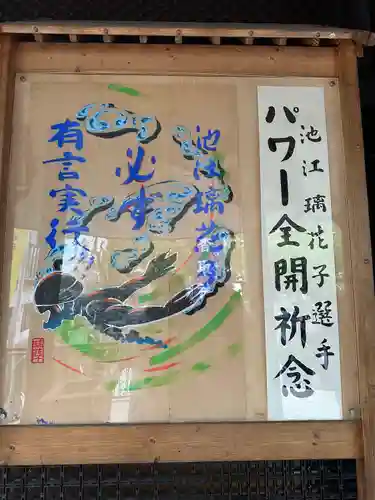 池江璃花子選手
パワー全開祈念
池江璃花子
必ず
有言実行